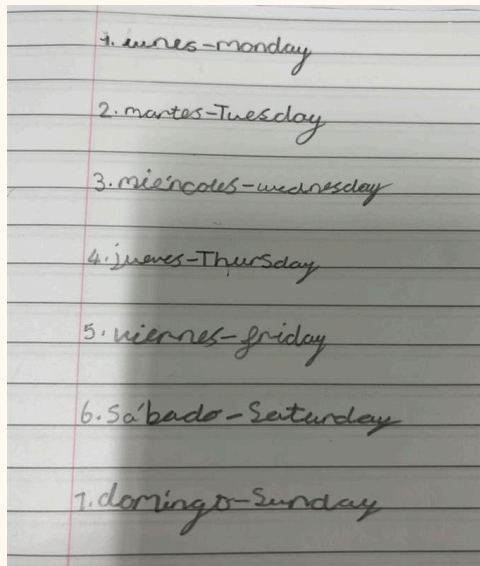 1. lunes-monday
2. martes-Tuesday
3. miércoles-wednesday
4. jueves-Thursday
5. viernes-friday
6. Sábado-Saturday
7. domingo-Sunday